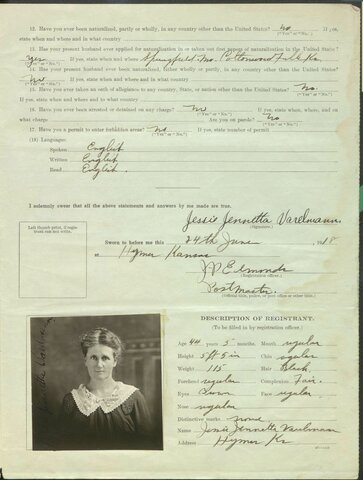 12. Have you ever been naturalized, partly or wholly, in any country other than the United States? no If yes,
("Yes" or "No.")
state when and where and in what country
13. Has your present husband ever applied for naturalization in or taken out first papers of naturalization in the United States?
yes If yes, state when and where Springfield Mo. Cottonwood Falls Ks.
("Yes" or "No.")
14. Has your present husband ever been naturalized, either wholly or partly, in any country other than the United States?
no If yes, state when and where and in what country
("Yes" or "No.")
15. Have you ever taken an oath of allegiance to any country, State, or nation other than the United States? No.
("Yes" or "No.")
If yes, state when and where and to what country
16. Have you ever been arrested or detained on any charge? no If yes, state when, where, and on
("Yes" or "No.")
what charge Are you on parole? no
("Yes" or "No.")
17. Have you a permit to enter forbidden areas? no If yes, state number of permit
("Yes" or "No.")
(18) Languages:
Spoken English
Written English
Read English.
I solemnly swear that all the above statements and answers by me made are true.
Jessie Jennetta Varelmann.
(Signature.)
Left thumb print, if registrant can not write.
Sworn to before me this 24th June, 1918
at Hymer Kansas
Edmonds
(Registration officer.)
Postmaster.
(Official title, police, or post office or other title.)
DESCRIPTION OF REGISTRANT.
(To be filled in by registration officer.)
Age 44 years 5 months Mouth regular
Height 5 ft 5 in Chin regular
Weight 115 Hair Black
Forehead regular Complexion Fair.
Eyes Face regular
Nose regular
Distinctive marks none
Name Jessie Jennetta Varelmann
Address Hymer Ks